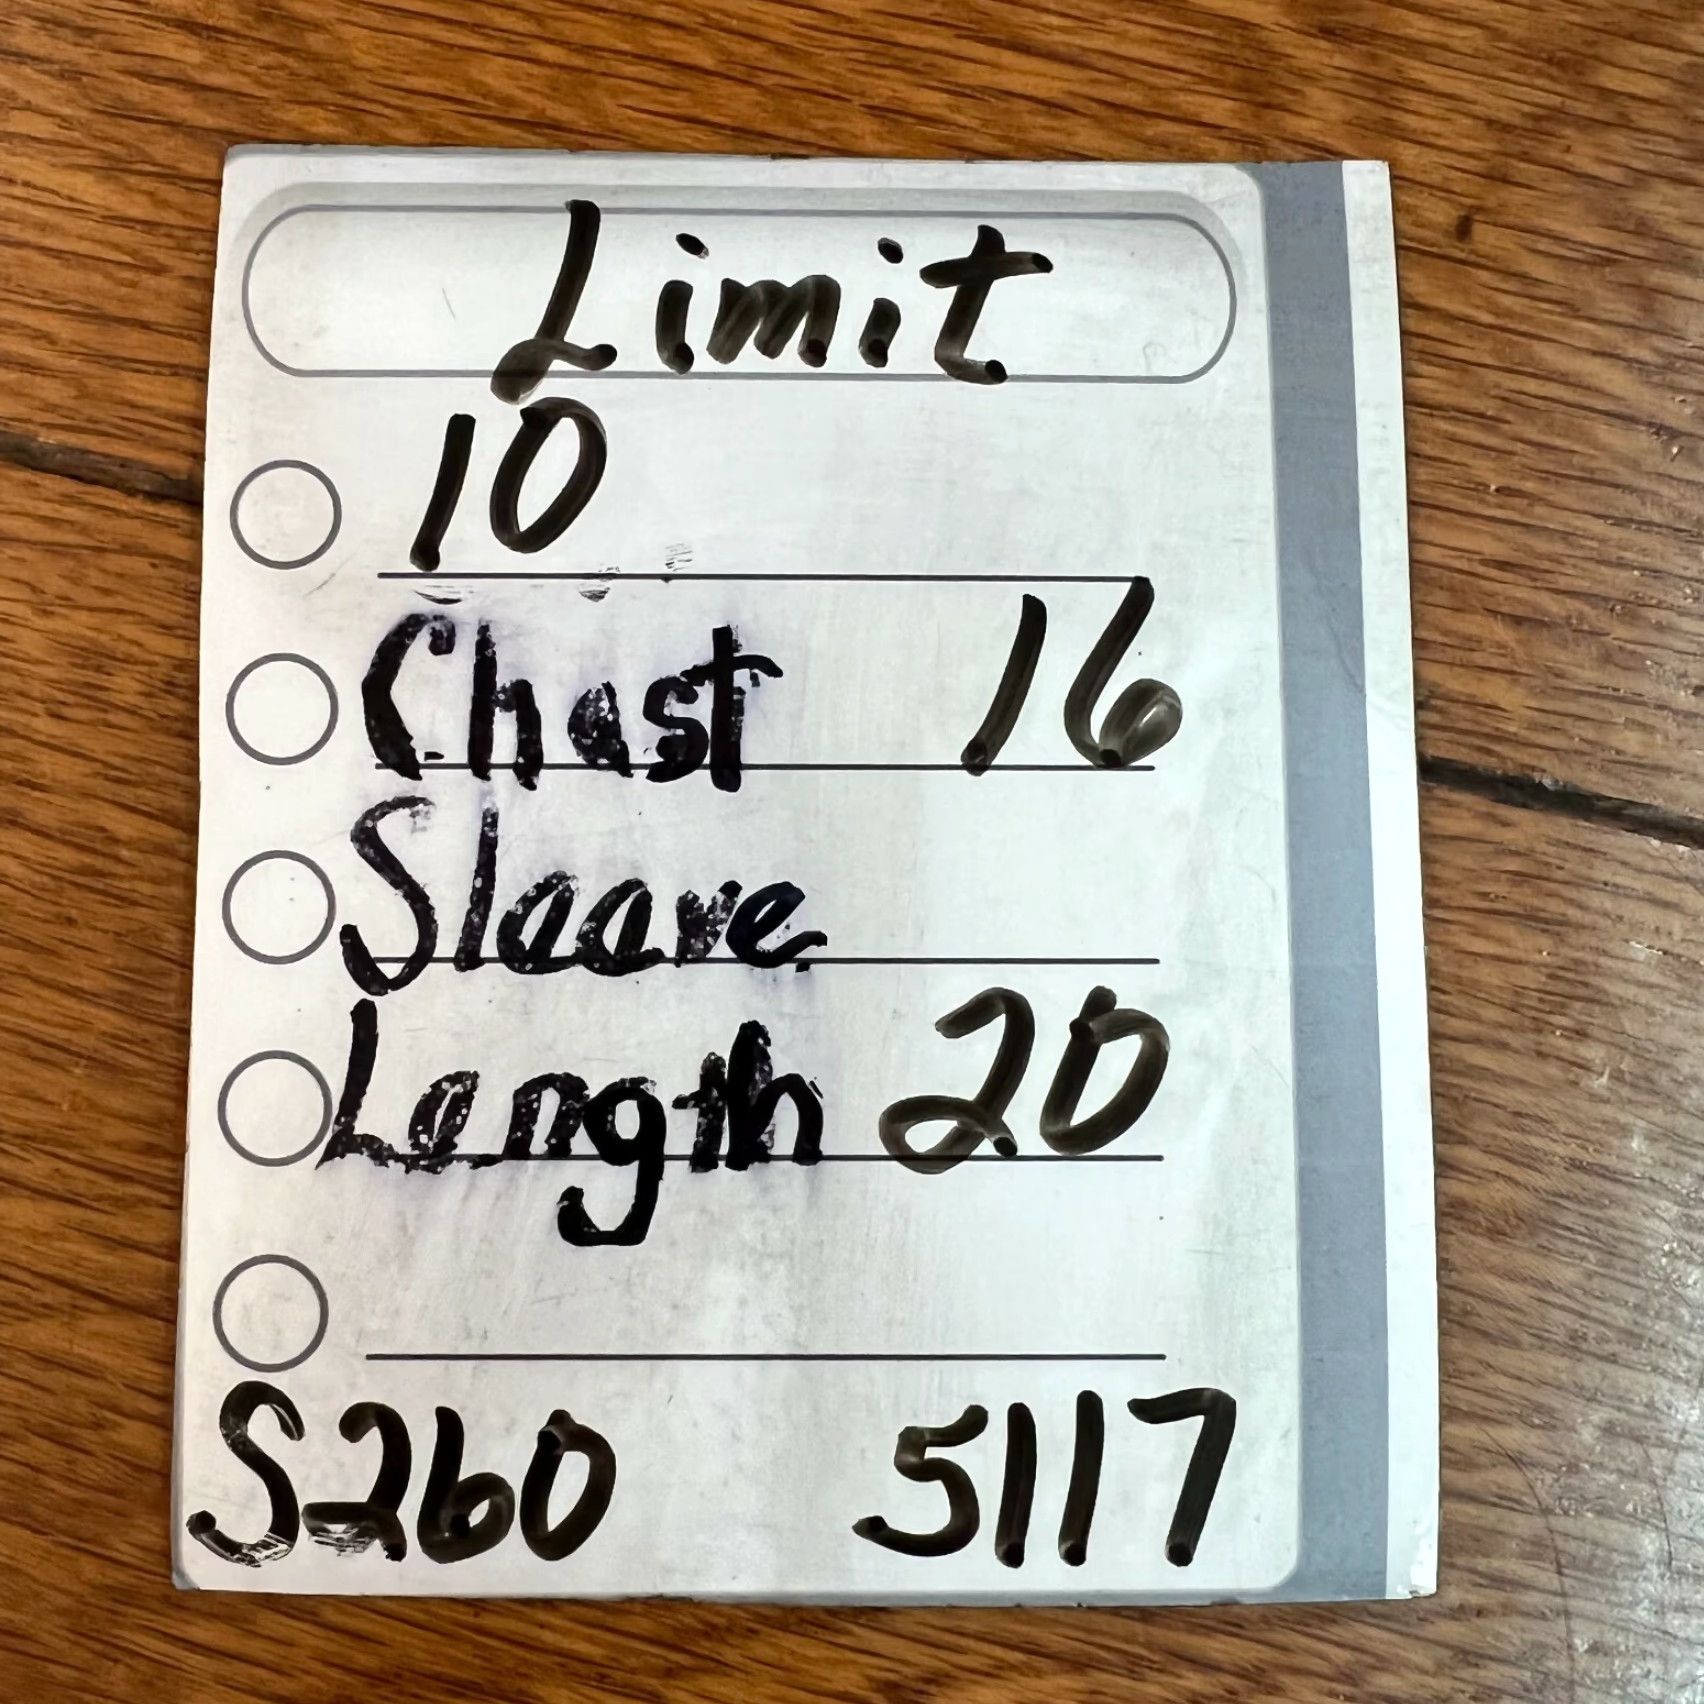 Limit
10
Chest 16
Sleeve
Length 20
S260 5117